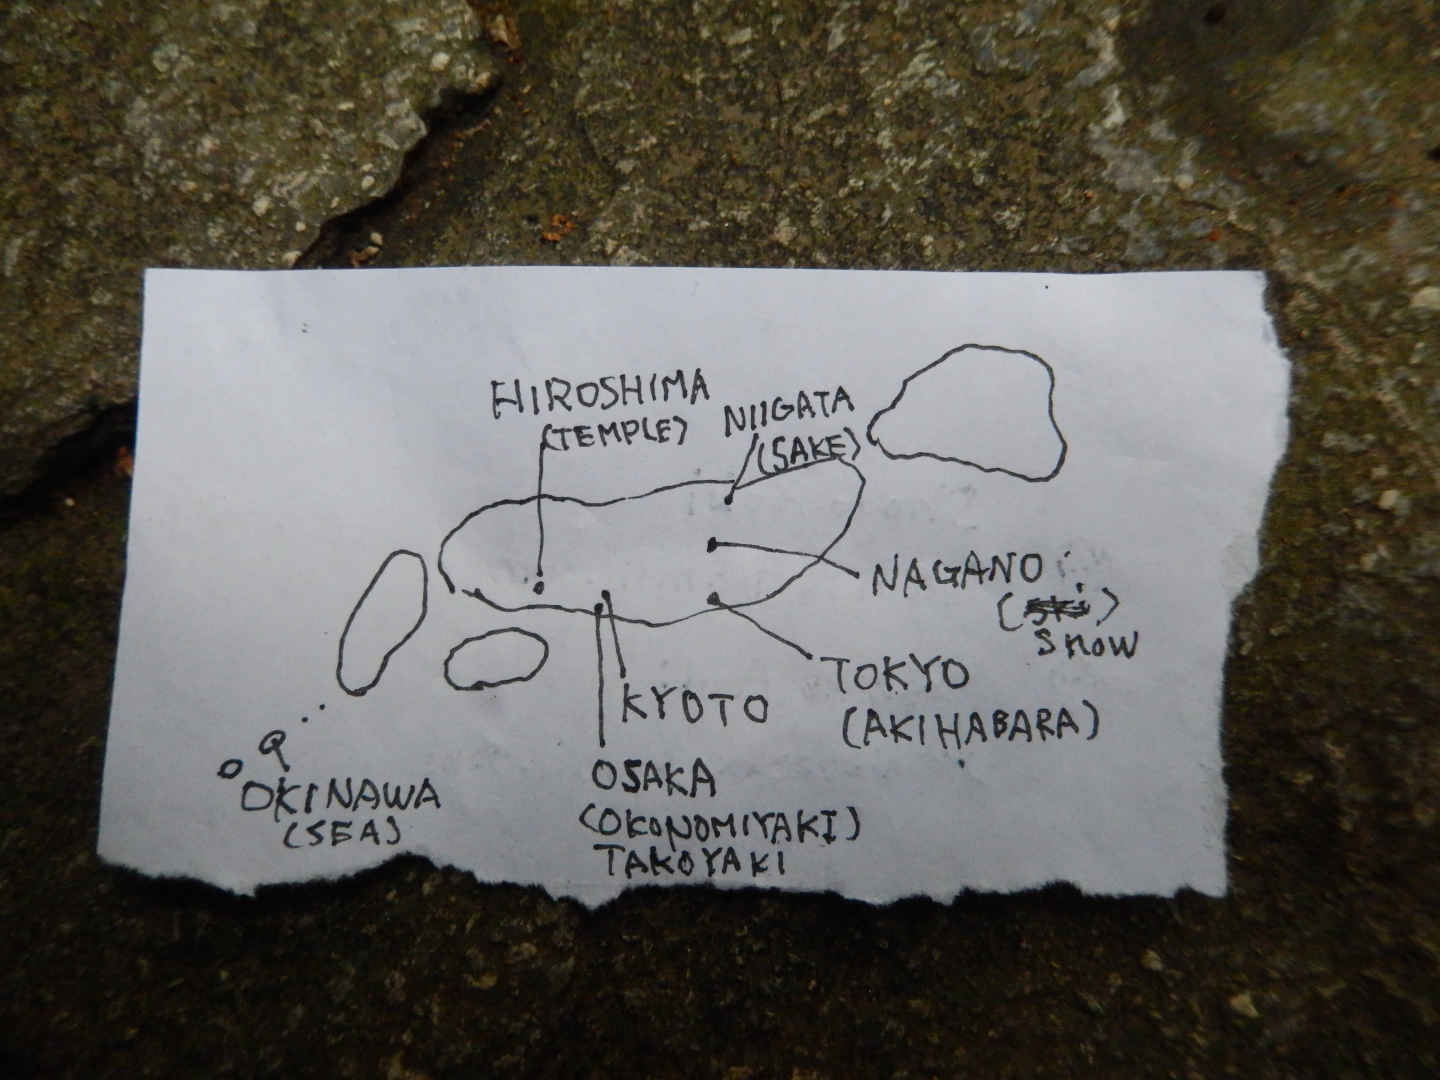 HIROSHIMA
(TEMPLE)
NIIGATA
(SAKE)
NAGANO
(ski)
snow
TOKYO
(AKIHABARA)
KYOTO
OSAKA
(OKONOMIYAKI)
TAKOYAKI
OKINAWA
(SEA)